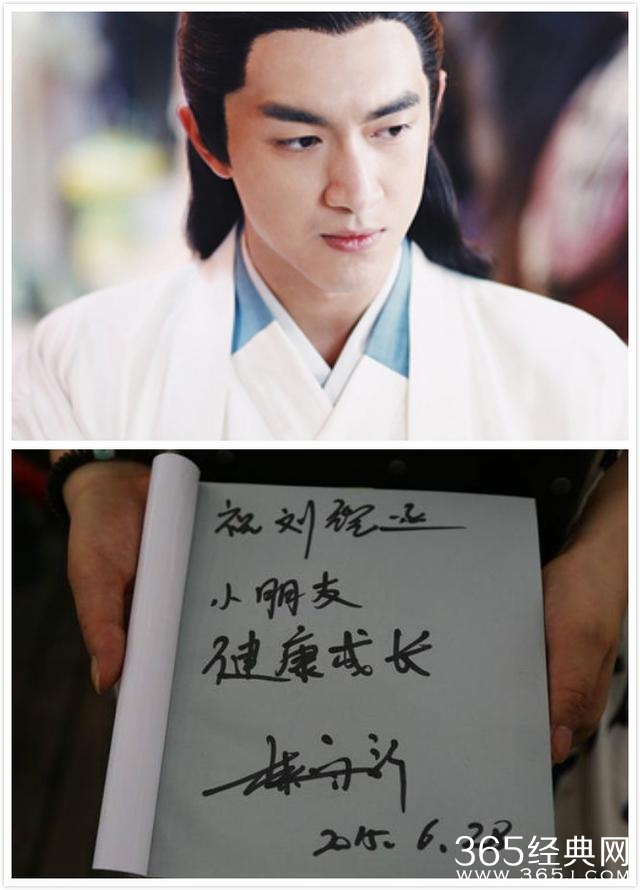 祝刘
小朋友
健康成长
2015.6.28
365经典网
WWW.365J.COM